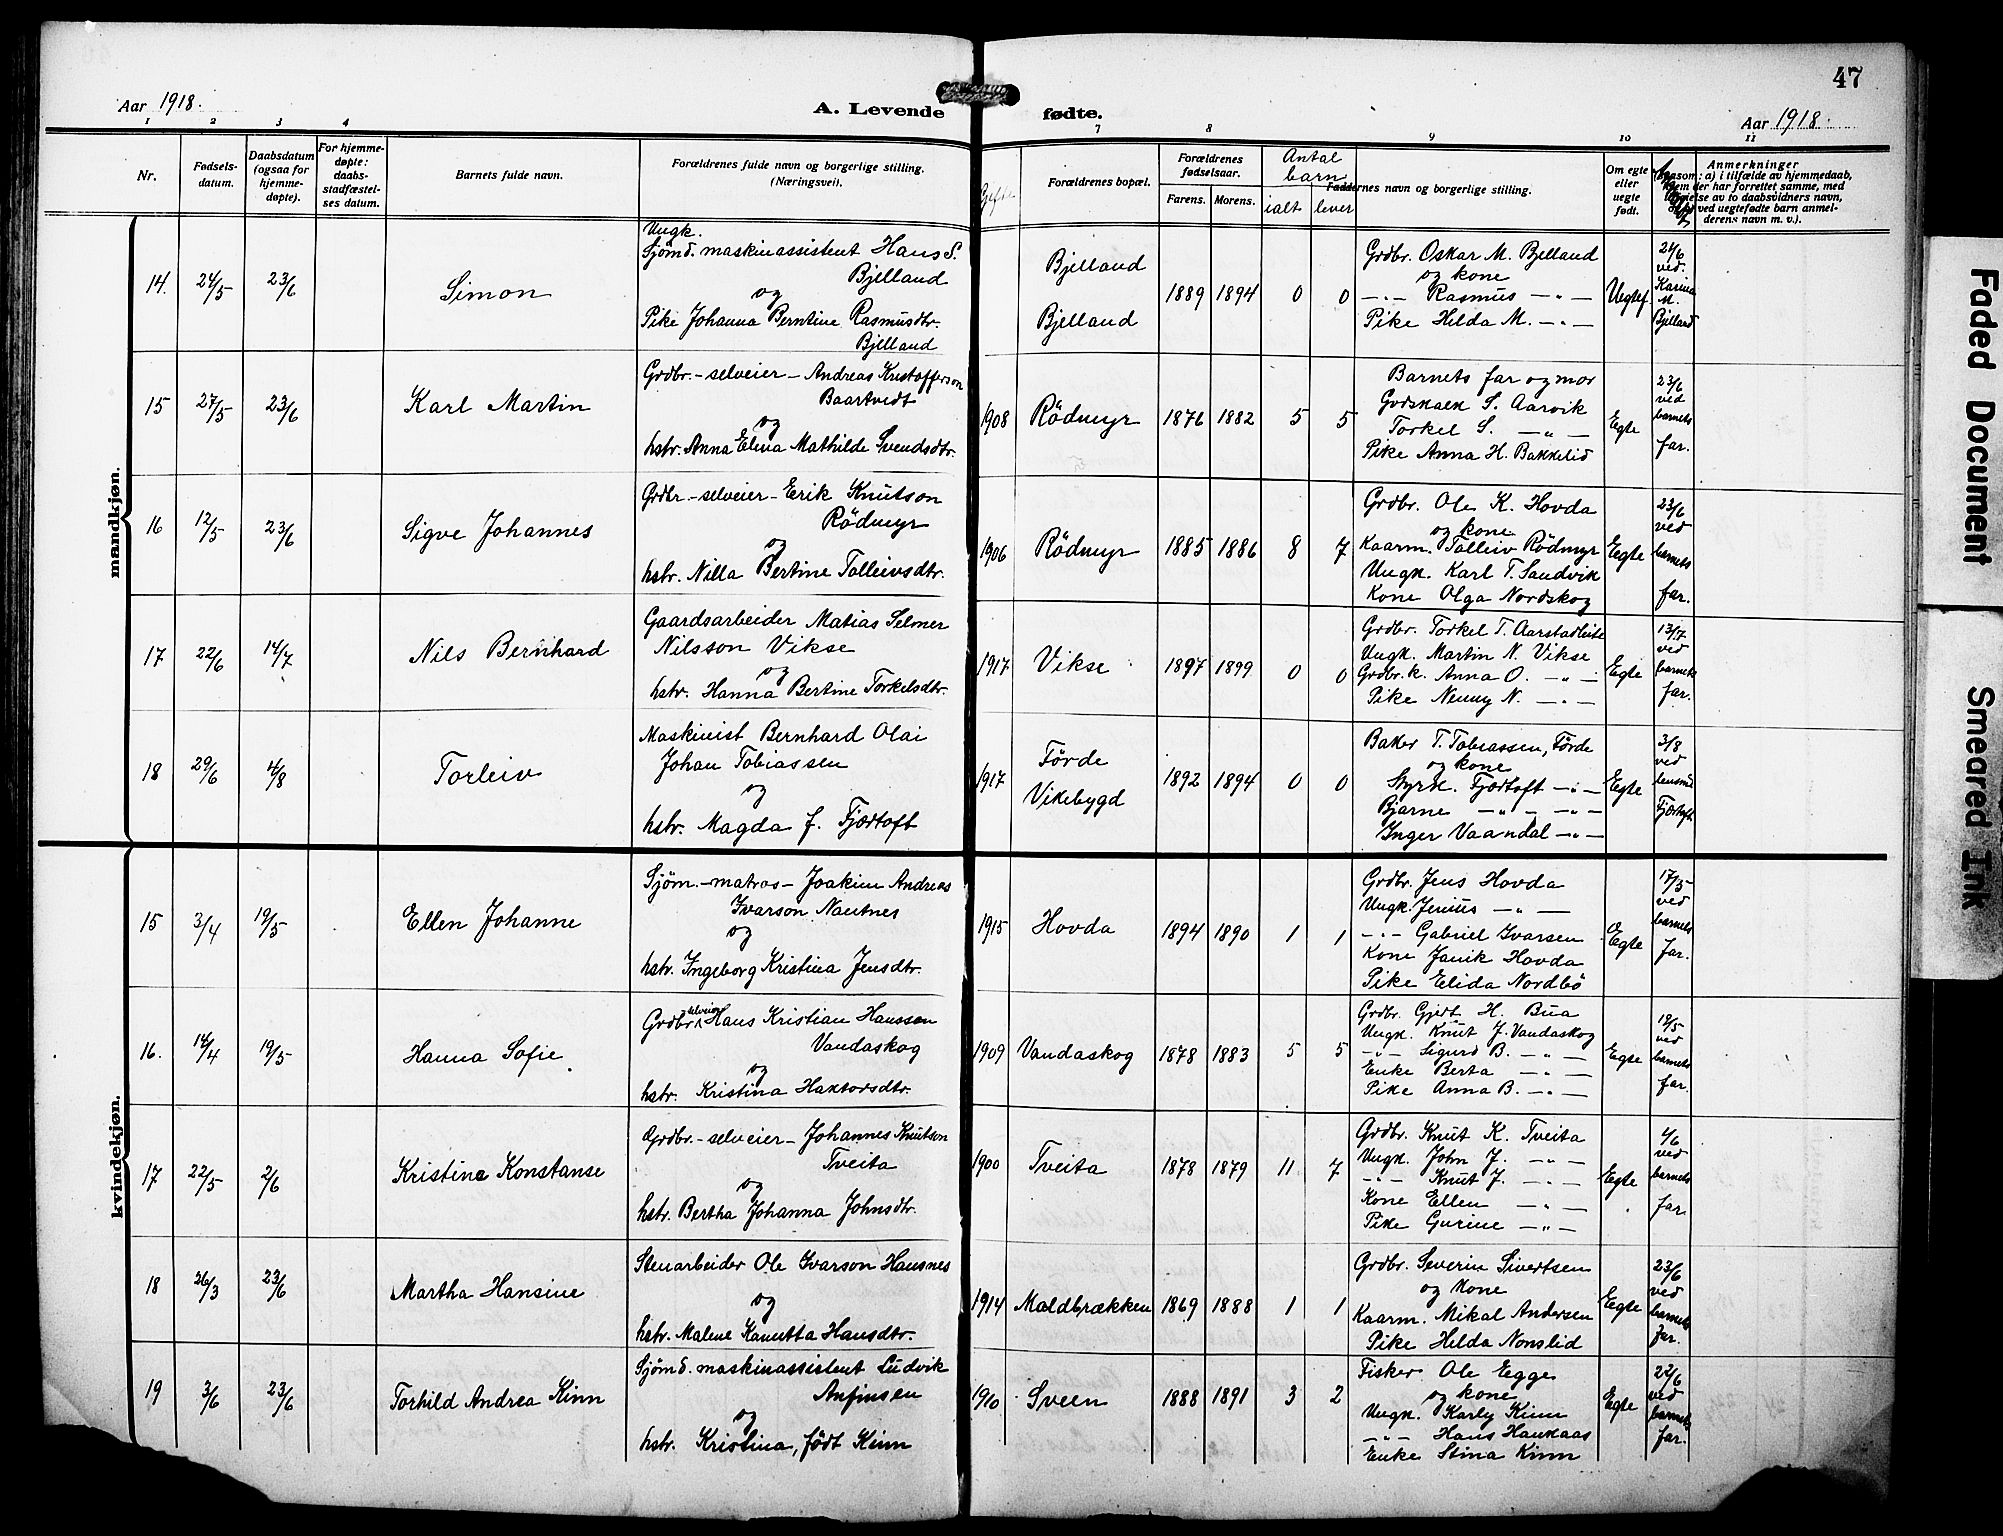 47
Aar 1918.
A. Levende fødte.
Aar 1918.
1 2 3 4 7 8 9 10 11
Nr.
Fødsels-
datum.
Daabsdatum
(ogsaa for
hjemme-
døpte).
For hjemme-
døpte:
daabs-
stadfæstel-
ses datum.
Barnets fulde navn.
Forældrenes fulde navn og borgerlige stilling.
(Næringsvei).
Gifte
Forældrenes bopæl.
Forældrenes
fødselsaar.
Farens. Morens.
Antal
barn
ialt lever
Faddernes navn og borgerlige stilling.
Om egte
eller
uegte
født.
Anmerkninger
mandkjøn.
14. 24/5 23/6
Simon
Ungk.
Sjömd. maskinassistent Hans S.
Bjelland
og
Pike Johanna Berntine Rasmusdtr.
Bjelland
Bjelland
Bjelland
1889 1894 0 0
Grdbr. Oskar M. Bjelland
og kone
—"— Rasmus —"—
Pike Hilda M. —"—
Uegtef.
24/6
ved.
Karina
M.
Bjelland
15 27/5 23/6
Karl Martin
Grdbr. - selveier - Andreas Kristofferson
Baartvedt
og
hstr. Anna Elina Mathilde Svendsdtr.
1908 Rödmyr 1876 1882 5 5
Barnets far og mor
Godskalk S. Aarvik
Torkel S. —"—
Pike Anna H. Bakkelid
Egte
23/6
ved
barnets
far.
16 12/5 23/6
Sigve Johannes
Grdbr. - selveier - Erik Knutson
Rödmyr
og
hstr. Nilla Bertine Tolleivsdtr.
1906 Rödmyr 1885 1886 8 7
Grdbr. Ole K. Hovda
og kone
Kaarm. Tolleiv Rödmyr
Ungk. Karl T. Sandvik
Kone Olga Nordskog
Egte
23/6
ved
barnets
far.
17 22/6 14/7
Nils Bernhard
Gaardsarbeider Matias Selmer
Nilsson Vikse
og
hstr. Hanna Bertine Torkelsdtr.
1917 Vikse 1897 1899 0 0
Grdbr. Torkel T. Aarstadleite
Ungk. Martin N. Vikse
Grdbr. k. Anna O. —"—
Pike Nenny N. —"—
Egte
13/7
ved
barnets
far.
18 29/6 4/8
Torleiv
Maskinist Bernhard Olai
Johan Tobiassen
og
hstr. Magda f. Fjærtoft
1917 Förde
Vikebygd
1892 1894 0 0
Baker T. Tobiassen, Förde
og kone
Styrm. Fjærtoft —"—
Bjarne —"— —"—
Inger Vaandal —"—
Egte
3/8
ved
Fjærtoft
kvindekjøn.
15 3/4 19/5
Ellen Johanne
Sjöm. - matros - Joakim Andreas
Ivarson Nautnes
og
hstr. Ingeborg Kristina Jensdtr.
1915 Hovda 1894 1890 1 1
Grdbr. Jens Hovda
Ungk. Jenius —"—
—"— Gabriel Ivarsen
Kone Janik Hovda
Pike Elida Nordbö
Egte
17/5
ved
barnets
far.
16. 14/4 19/5
Hanna Sofie
Grdbr. selveier Hans Kristian Hanssen
Vandaskog
og
hstr. Kristina Haktorsdtr.
1909 Vandaskog 1878 1883 5 5
Grdbr. Gjert H. Bua
Ungk. Knut J. Vandaskog
—"— Sigurd B. —"—
Enke Berta —"—
Pike Anna B. —"—
Egte
18/5
ved
barnets
far.
17 22/5 2/6
Kristine Konstanse
Grdbr. - selveier - Johannes Knutson
Tveita
og
hstr. Bertha Johanna Johnsdtr.
1900 Tveita 1878 1879 11 7
Grdbr. Knut K. Tveita
Ungk. John J. —"—
—"— Knut J. —"—
Kone Ellen —"—
Pike Gurine —"—
Egte
ved
barnets
far
18 26/3 23/6
Martha Hansine
Stenarbeider Ole Ivarson Hausnes
og
hstr. Malene Kanutta Hansdtr.
1914 Moldbrækken 1869 1888 1 1
Grdbr. Severin Sivertsen
og kone
Kaarm. Mikal Andersen
Pike Hilda Nonslid
Egte
23/6
ved
barnets
far.
19 3/6 23/6
Torhild Andrea Kinn
Sjömd. maskinassistent Ludvik
Anfinsen
og
hstr. Kristina, født Kinn
1910 Sveen 1888 1891 3 2
Fisker Ole Egge
og kone
Ungk. Karly Kinn
—"— Hans Haukaas
Enke Stina Kinn
Egte
22/6
ved
barnets
far.
Faded Document
Smeared Ink